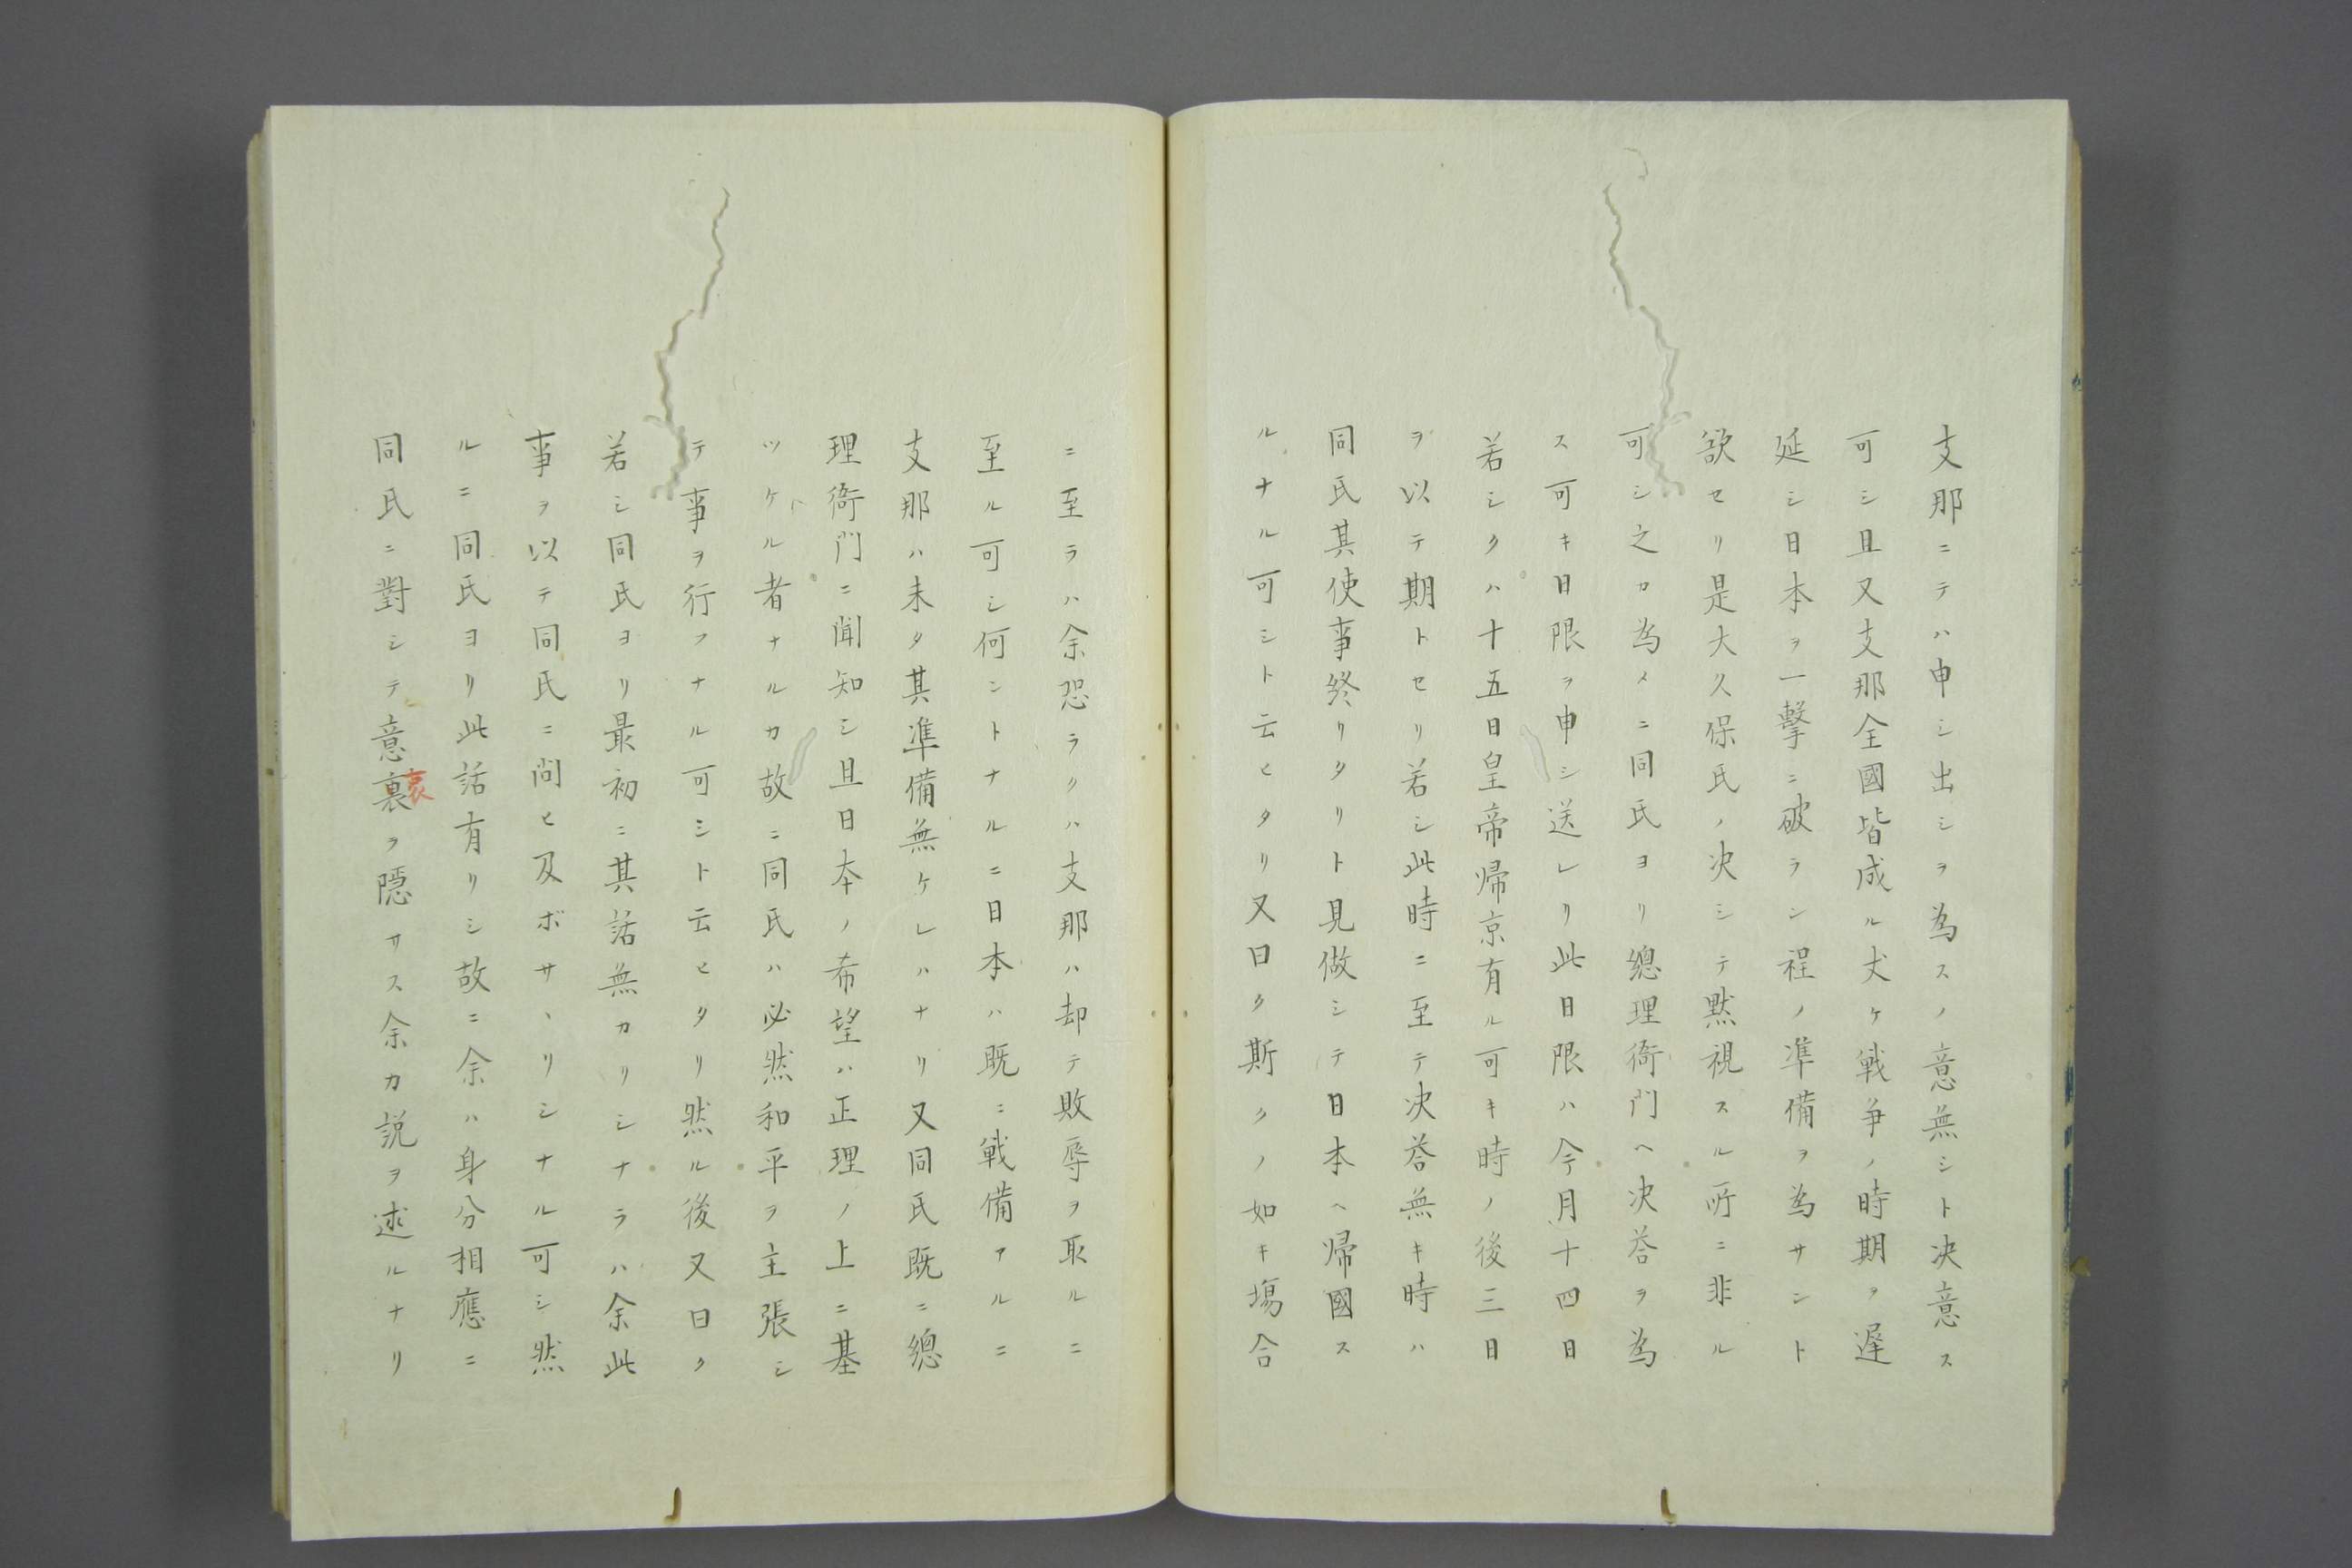 支那ニテハ申シ出シヲ為スノ意無シト决意ス
可シ且又支那全國皆成ル丈ケ戦争ノ時期ヲ遅
延シ日本ヲ一擊ニ破ラン程ノ準備ヲ為サント
欲セリ是大久保氏ノ决シテ黙視スル所ニ非ル
可シ之カ為メニ同氏ヨリ總理衙門ヘ决荅ヲ為
ス可キ日限ヲ申シ送レリ此日限ハ今月十四日
若シクハ十五日皇帝帰京有ル可キ時ノ後三日
ヲ以テ期トセリ若シ此時ニ至テ决荅無キ時ハ
同氏其使事終リタリト見做シテ日本ヘ帰國ス
ルナル可シト云ヒタリ又曰ク斯クノ如キ塲合
ニ至ラハ余恐ラクハ支那ハ却テ敗辱ヲ取ルニ
至ル可シ何ントナルニ日本ハ既ニ戦備アルニ
支那ハ未タ其準備無ケレハナリ又同氏既ニ總
理衙門ニ聞知シ且日本ノ希望ハ正理ノ上ニ基
ツケル者ナルカ故ニ同氏ハ必然和平ヲ主張シ
テ事ヲ行フナル可シト云ヒタリ然ル後又曰ク
若シ同氏ヨリ最初ニ其話無カリシナラハ余此
事ヲ以テ同氏ニ问ヒ及ボサヽリシナル可シ然
ルニ同氏ヨリ此話有リシ故ニ余ハ身分相應ニ
同氏ニ對シテ意裏衷ヲ隠サス余カ説ヲ述ルナリ